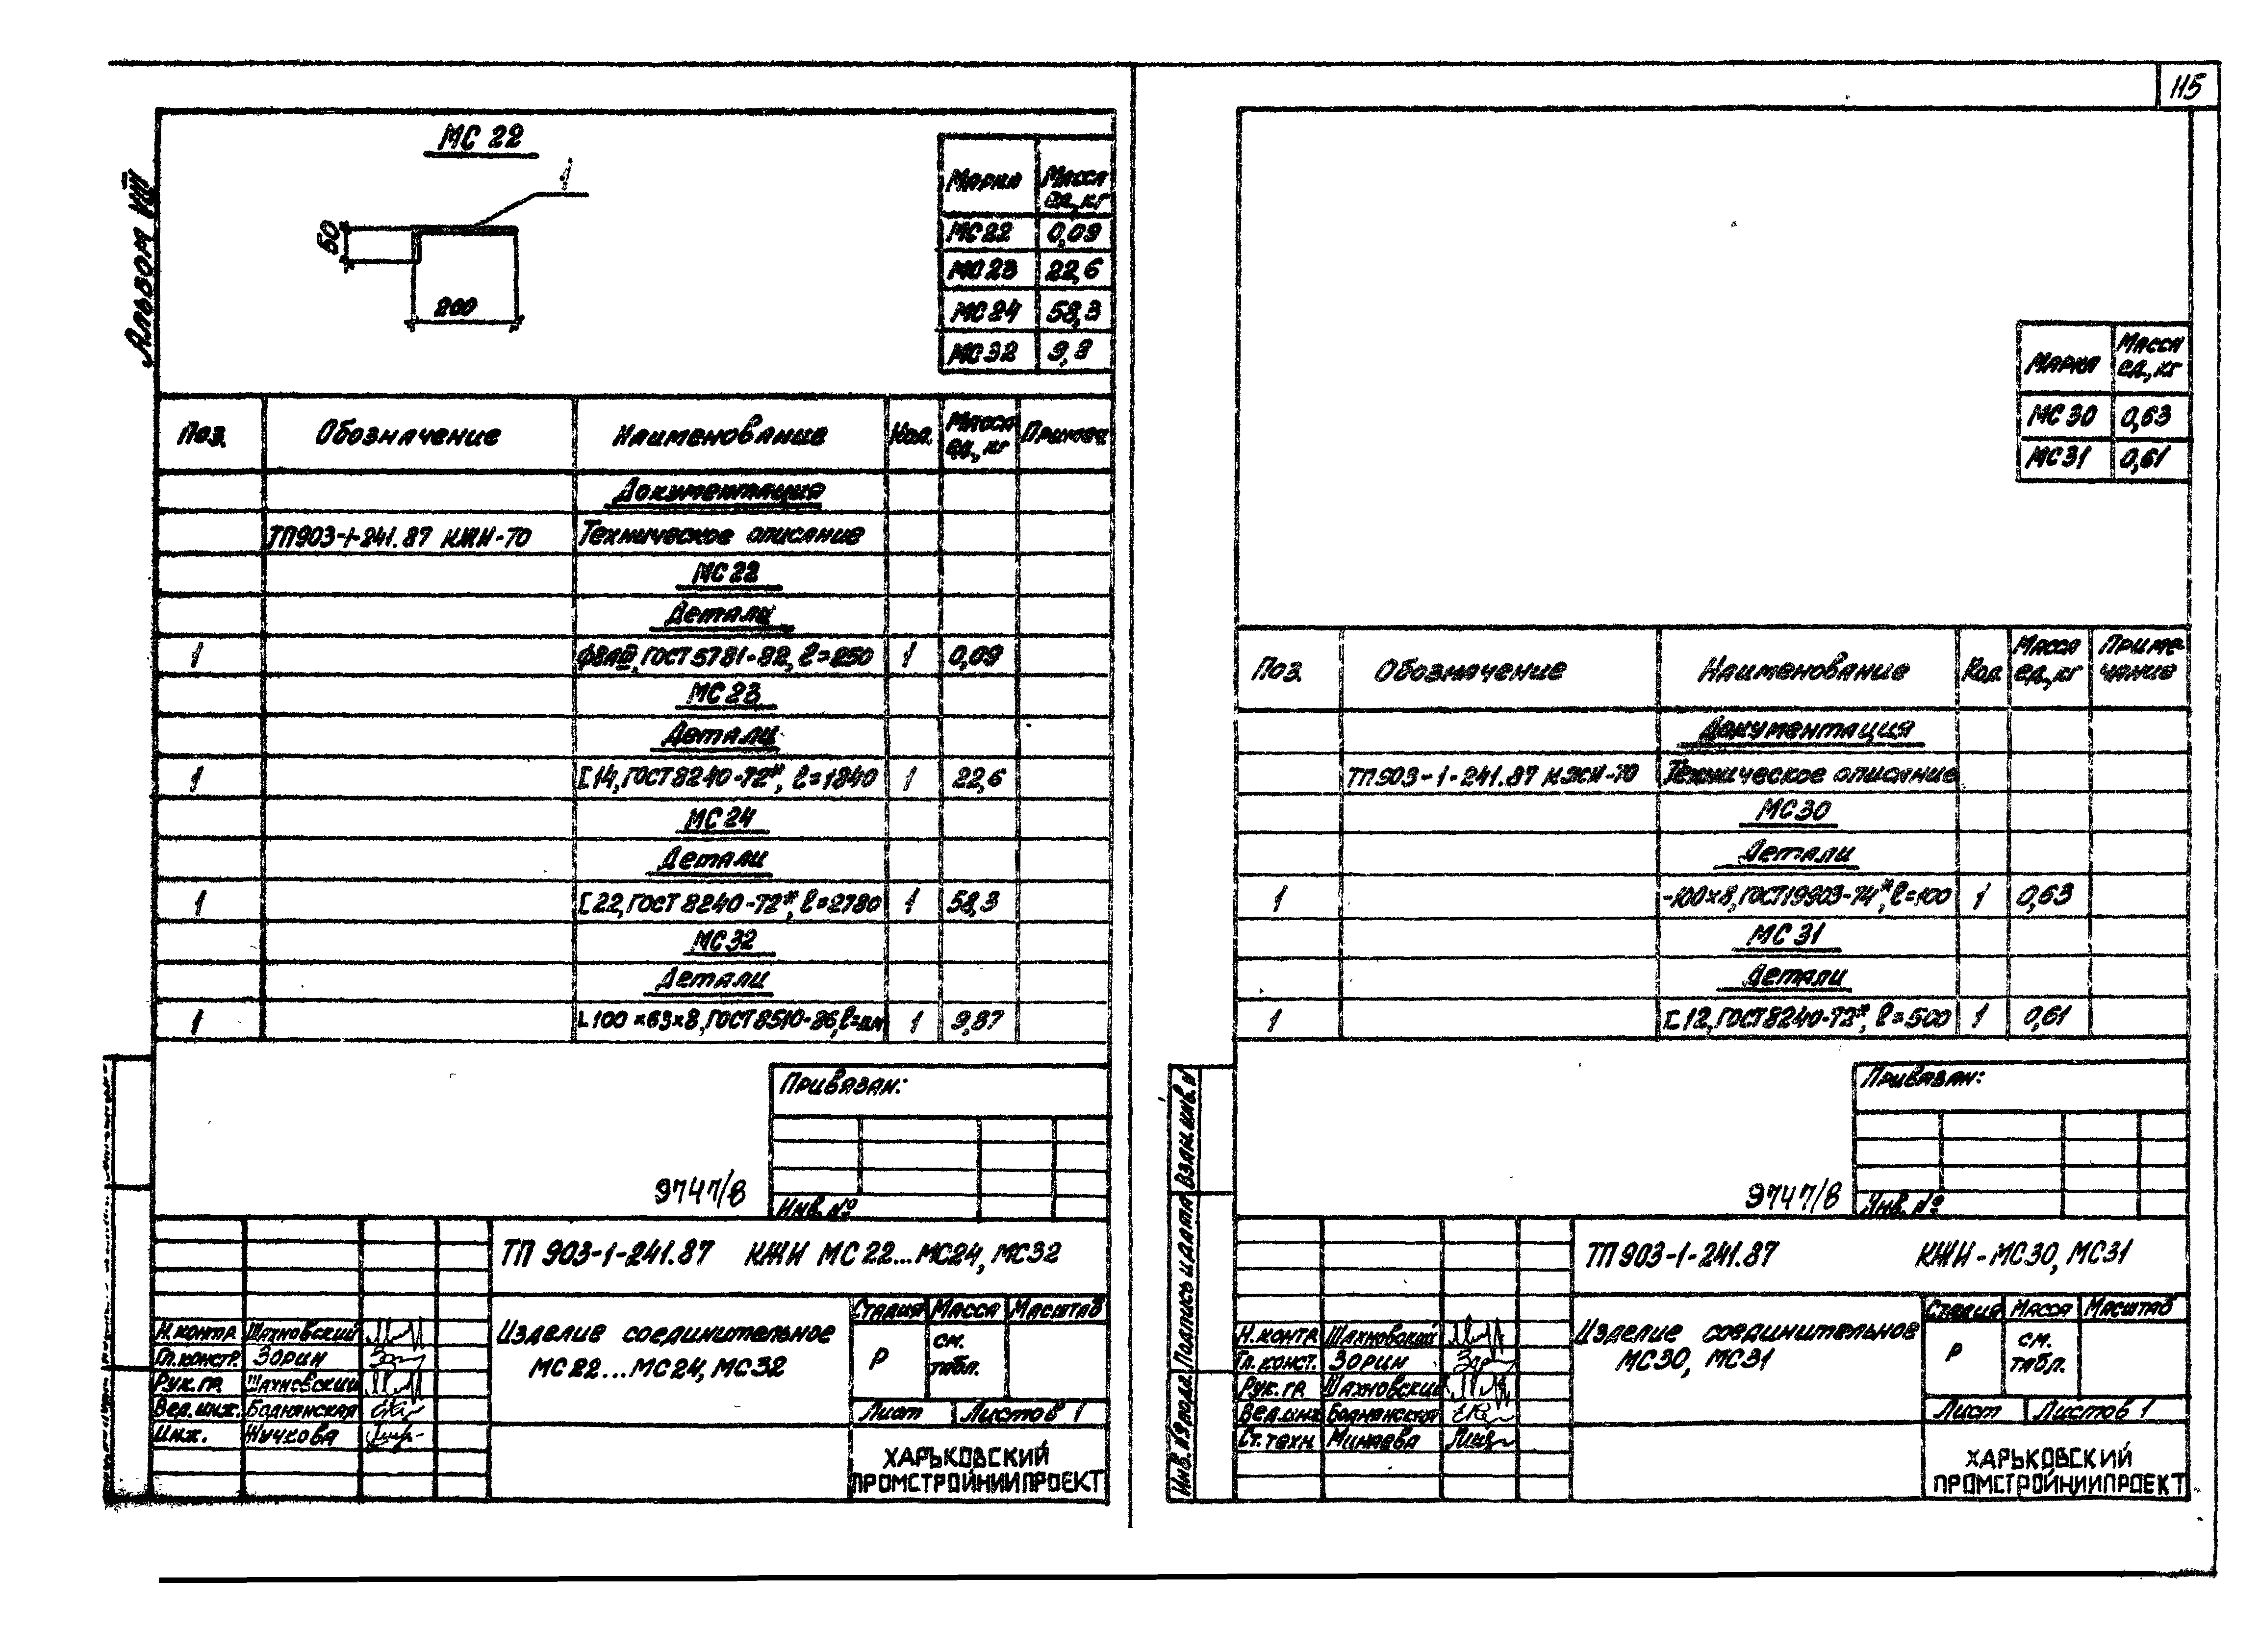 115
Альбом VIII
МС 22
1
50
200
Марка Масса ед., кг
МС 22 0,09
МС 23 22,6
МС 24 58,3
МС 32 9,8
Поз. Обозначение Наименование Кол. Масса ед., кг Примеч.
Документация
ТП 903-1-241.87 КЖИ-70 Техническое описание
МС 22
Детали
1 ф8АIII, ГОСТ 5781-82, ℓ=250 1 0,09
МС 23
Детали
1 [14, ГОСТ 8240-72*, ℓ=1840 1 22,6
МС 24
Детали
1 [22, ГОСТ 8240-72*, ℓ=2780 1 58,3
МС 32
Детали
1 L100×63×8, ГОСТ 8510-86, 1 9,87
Привязан:
9747/8
Инв. №
ТП 903-1-241.87 КЖИ МС 22...МС24, МС32
Изделие соединительное
МС 22...МС 24, МС 32
Стадия Масса Масштаб
Р см. табл.
Лист Листов 1
Н.контр. Шахновский
Гл.констр. Зорин
Рук.гр. Шахновский
Вед.инж. Боднянская
Инж. Жучкова
ХАРЬКОВСКИЙ
ПРОМСТРОЙНИИПРОЕКТ
Марка Масса ед., кг
МС 30 0,63
МС 31 0,61
Поз. Обозначение Наименование Кол. Масса ед., кг Примечание
Документация
ТП 903-1-241.87 КЖИ-70 Техническое описание
МС 30
Детали
1 -100×8, ГОСТ 19903-74*, ℓ=100 1 0,63
МС 31
Детали
1 [12, ГОСТ 8240-72*, ℓ=500 1 0,61
Привязан:
9747/8
Инв. №
Взам.инв.№
Подпись и дата
Инв.№ подл.
ТП 903-1-241.87 КЖИ-МС30, МС31
Изделие соединительное
МС30, МС31
Стадия Масса Масштаб
Р см. табл.
Лист Листов 1
Н.контр. Шахновский
Гл.конст. Зорин
Рук.гр. Шахновский
Вед.инж. Боднянская
Ст.техн. Минаева
ХАРЬКОВСКИЙ
ПРОМСТРОЙНИИПРОЕКТ